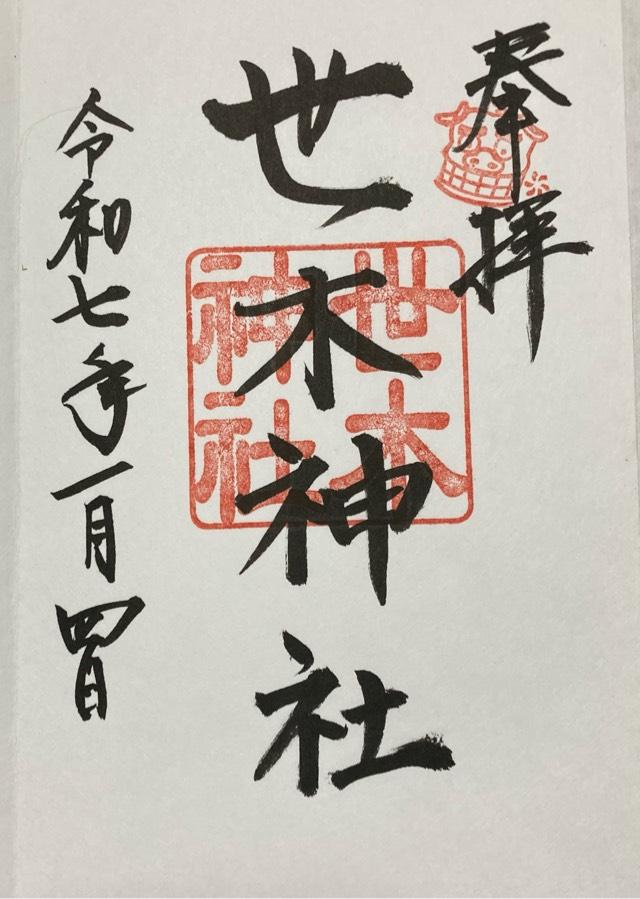 奉拝
世木神社
世木
神社
令和七年一月四日